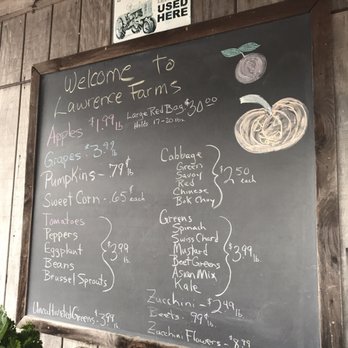 USED
HERE
Welcome to
Lawrence Farms
Apples $1.99 lb
Large Red Bag $30.00
Holds 17-20
Grapes $3.99 lb
Pumpkins - .79¢ lb
Sweet Corn - .65¢ each
Tomatoes
Peppers
Eggplant
Beans
Brussel Sprouts
$3.99 lb
Cabbage
Green
Savoy
Red
Chinese
Bok Choy
$2.50 each
Greens
Spinach
Swiss Chard
Mustard
Beet Greens
Asian Mix
Kale
$3.99 lb
Zucchini - $2.49 lb
Beets - 99¢ lb
Zucchini Flowers - $8.99
Greens - $3.99 lb